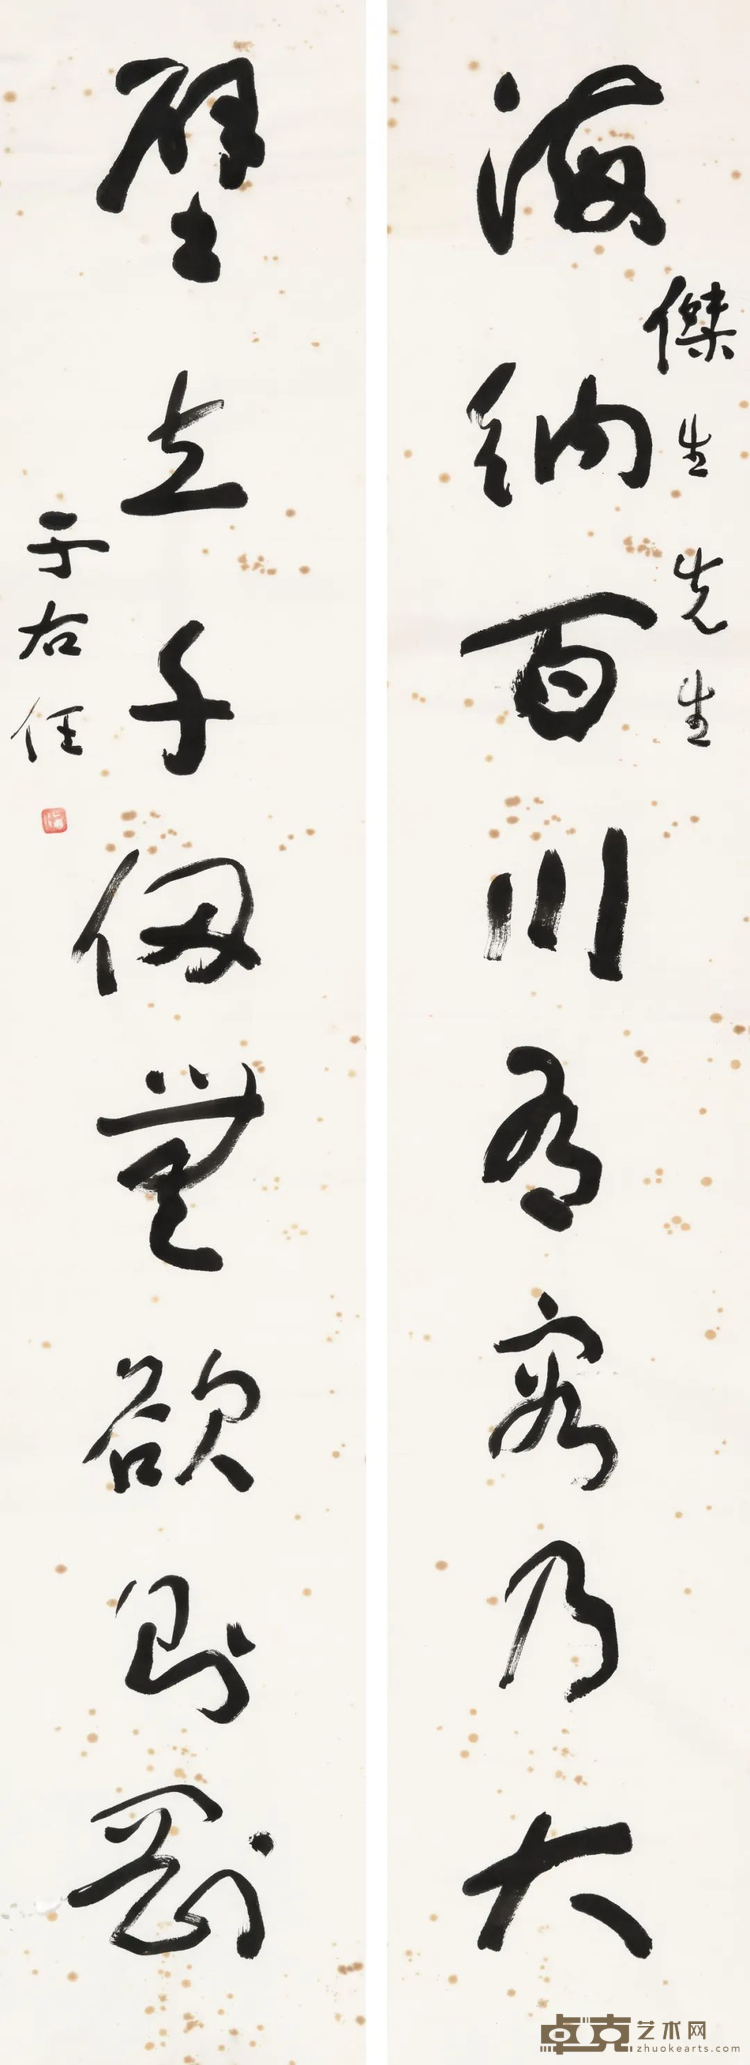 海纳百川有容乃大
傑生先生
壁立千仞無欲則剛
于右任
卓克艺术网
zhuokearts.com